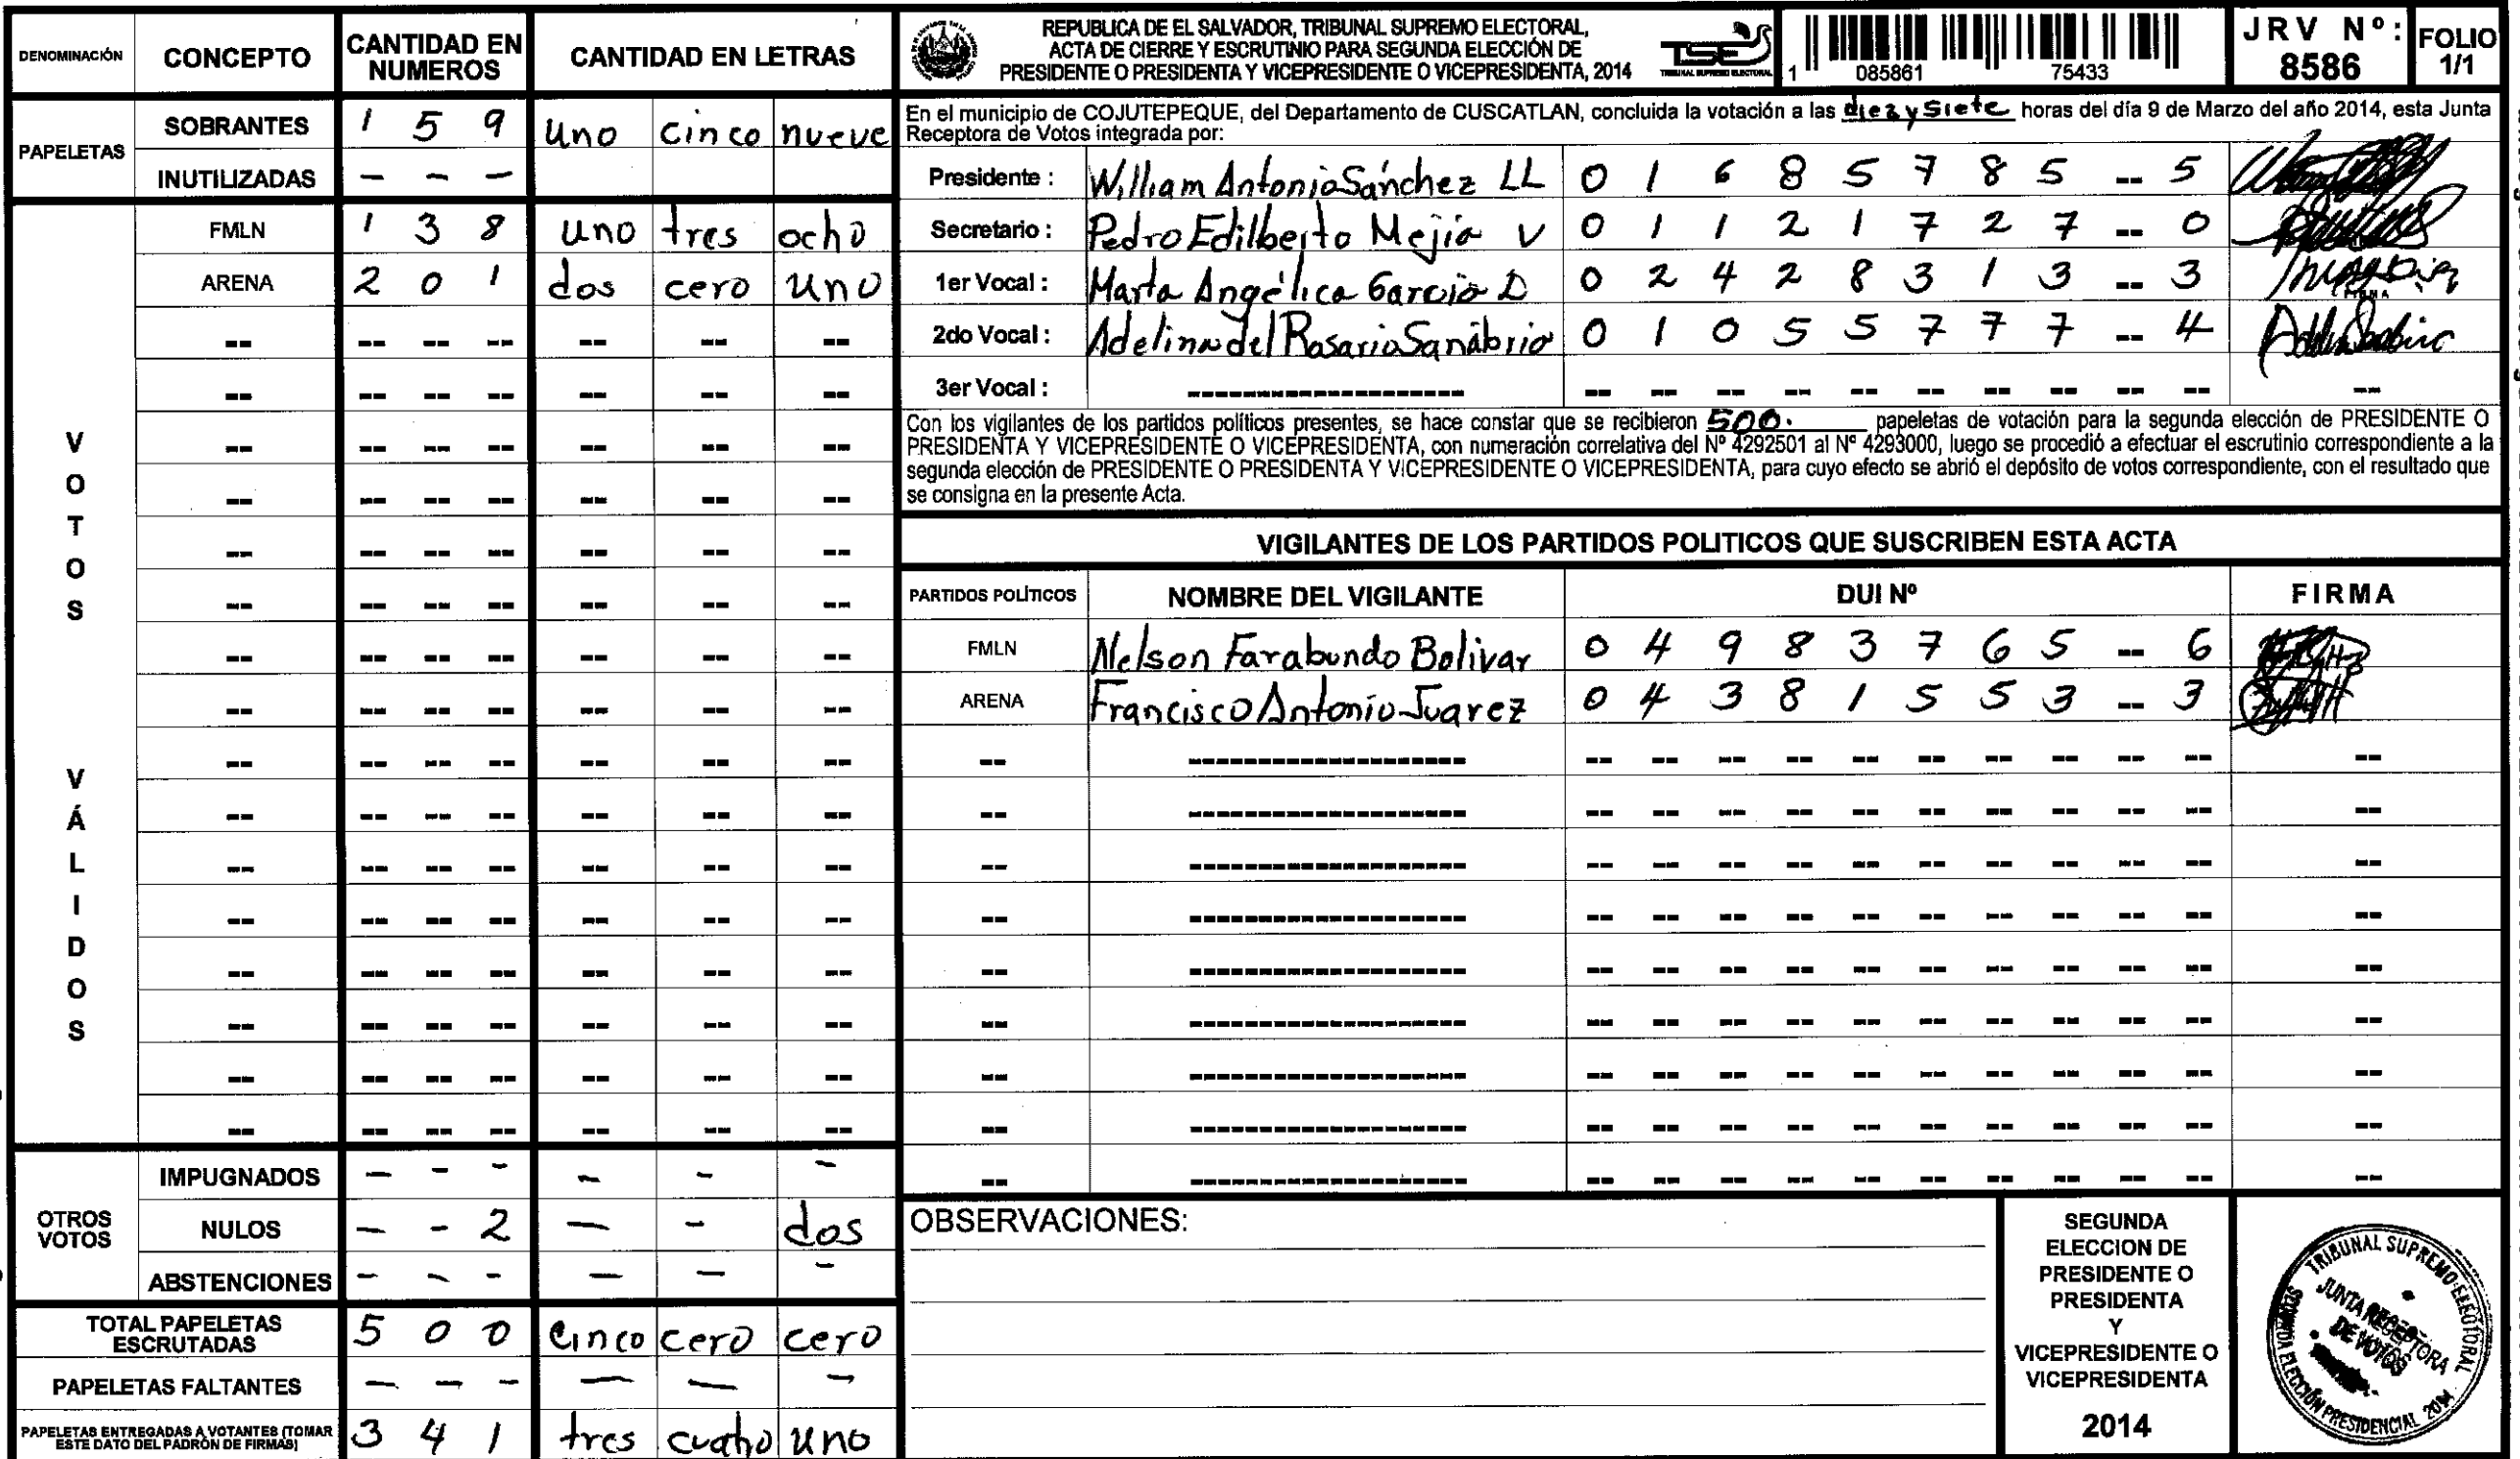 DENOMINACIÓN CONCEPTO CANTIDAD EN NUMEROS CANTIDAD EN LETRAS
PAPELETAS
SOBRANTES 1 5 9 uno cinco nueve
INUTILIZADAS - - -
VOTOS VÁLIDOS
FMLN 1 3 8 uno tres ocho
ARENA 2 0 1 dos cero uno
OTROS VOTOS
IMPUGNADOS - - - - - -
NULOS - - 2 - - dos
ABSTENCIONES - - - - - -
TOTAL PAPELETAS ESCRUTADAS 5 0 0 cinco cero cero
PAPELETAS FALTANTES - - - - - -
PAPELETAS ENTREGADAS A VOTANTES (TOMAR ESTE DATO DEL PADRÓN DE FIRMAS) 3 4 1 tres cuatro uno
REPUBLICA DE EL SALVADOR, TRIBUNAL SUPREMO ELECTORAL,
ACTA DE CIERRE Y ESCRUTINIO PARA SEGUNDA ELECCIÓN DE
PRESIDENTE O PRESIDENTA Y VICEPRESIDENTE O VICEPRESIDENTA, 2014
TSE
TRIBUNAL SUPREMO ELECTORAL
1 085861 75433
JRV Nº: 8586
FOLIO 1/1
En el municipio de COJUTEPEQUE, del Departamento de CUSCATLAN, concluida la votación a las diez y siete horas del día 9 de Marzo del año 2014, esta Junta
Receptora de Votos integrada por:
Presidente : William Antonio Sánchez LL 0 1 6 8 5 7 8 5 -- 5
Secretario : Pedro Edilberto Mejía V 0 1 1 2 1 7 2 7 -- 0
1er Vocal : Marta Angélica Garcia D 0 2 4 2 8 3 1 3 -- 3
2do Vocal : Adelina del Rosario Sanabria 0 1 0 5 5 7 7 7 -- 4
3er Vocal :
Con los vigilantes de los partidos políticos presentes, se hace constar que se recibieron 500. papeletas de votación para la segunda elección de PRESIDENTE O
PRESIDENTA Y VICEPRESIDENTE O VICEPRESIDENTA, con numeración correlativa del Nº 4292501 al Nº 4293000, luego se procedió a efectuar el escrutinio correspondiente a la
segunda elección de PRESIDENTE O PRESIDENTA Y VICEPRESIDENTE O VICEPRESIDENTA, para cuyo efecto se abrió el depósito de votos correspondiente, con el resultado que
se consigna en la presente Acta.
VIGILANTES DE LOS PARTIDOS POLITICOS QUE SUSCRIBEN ESTA ACTA
PARTIDOS POLÍTICOS NOMBRE DEL VIGILANTE DUI Nº FIRMA
FMLN Nelson Farabundo Bolivar 0 4 9 8 3 7 6 5 -- 6
ARENA Francisco Antonio Juarez 0 4 3 8 1 5 5 3 -- 3
OBSERVACIONES:
SEGUNDA
ELECCION DE
PRESIDENTE O
PRESIDENTA
Y
VICEPRESIDENTE O
VICEPRESIDENTA
2014
TRIBUNAL SUPREMO ELECTORAL
JUNTA RECEPTORA
DE VOTOS
ELECCIÓN PRESIDENCIAL 2014